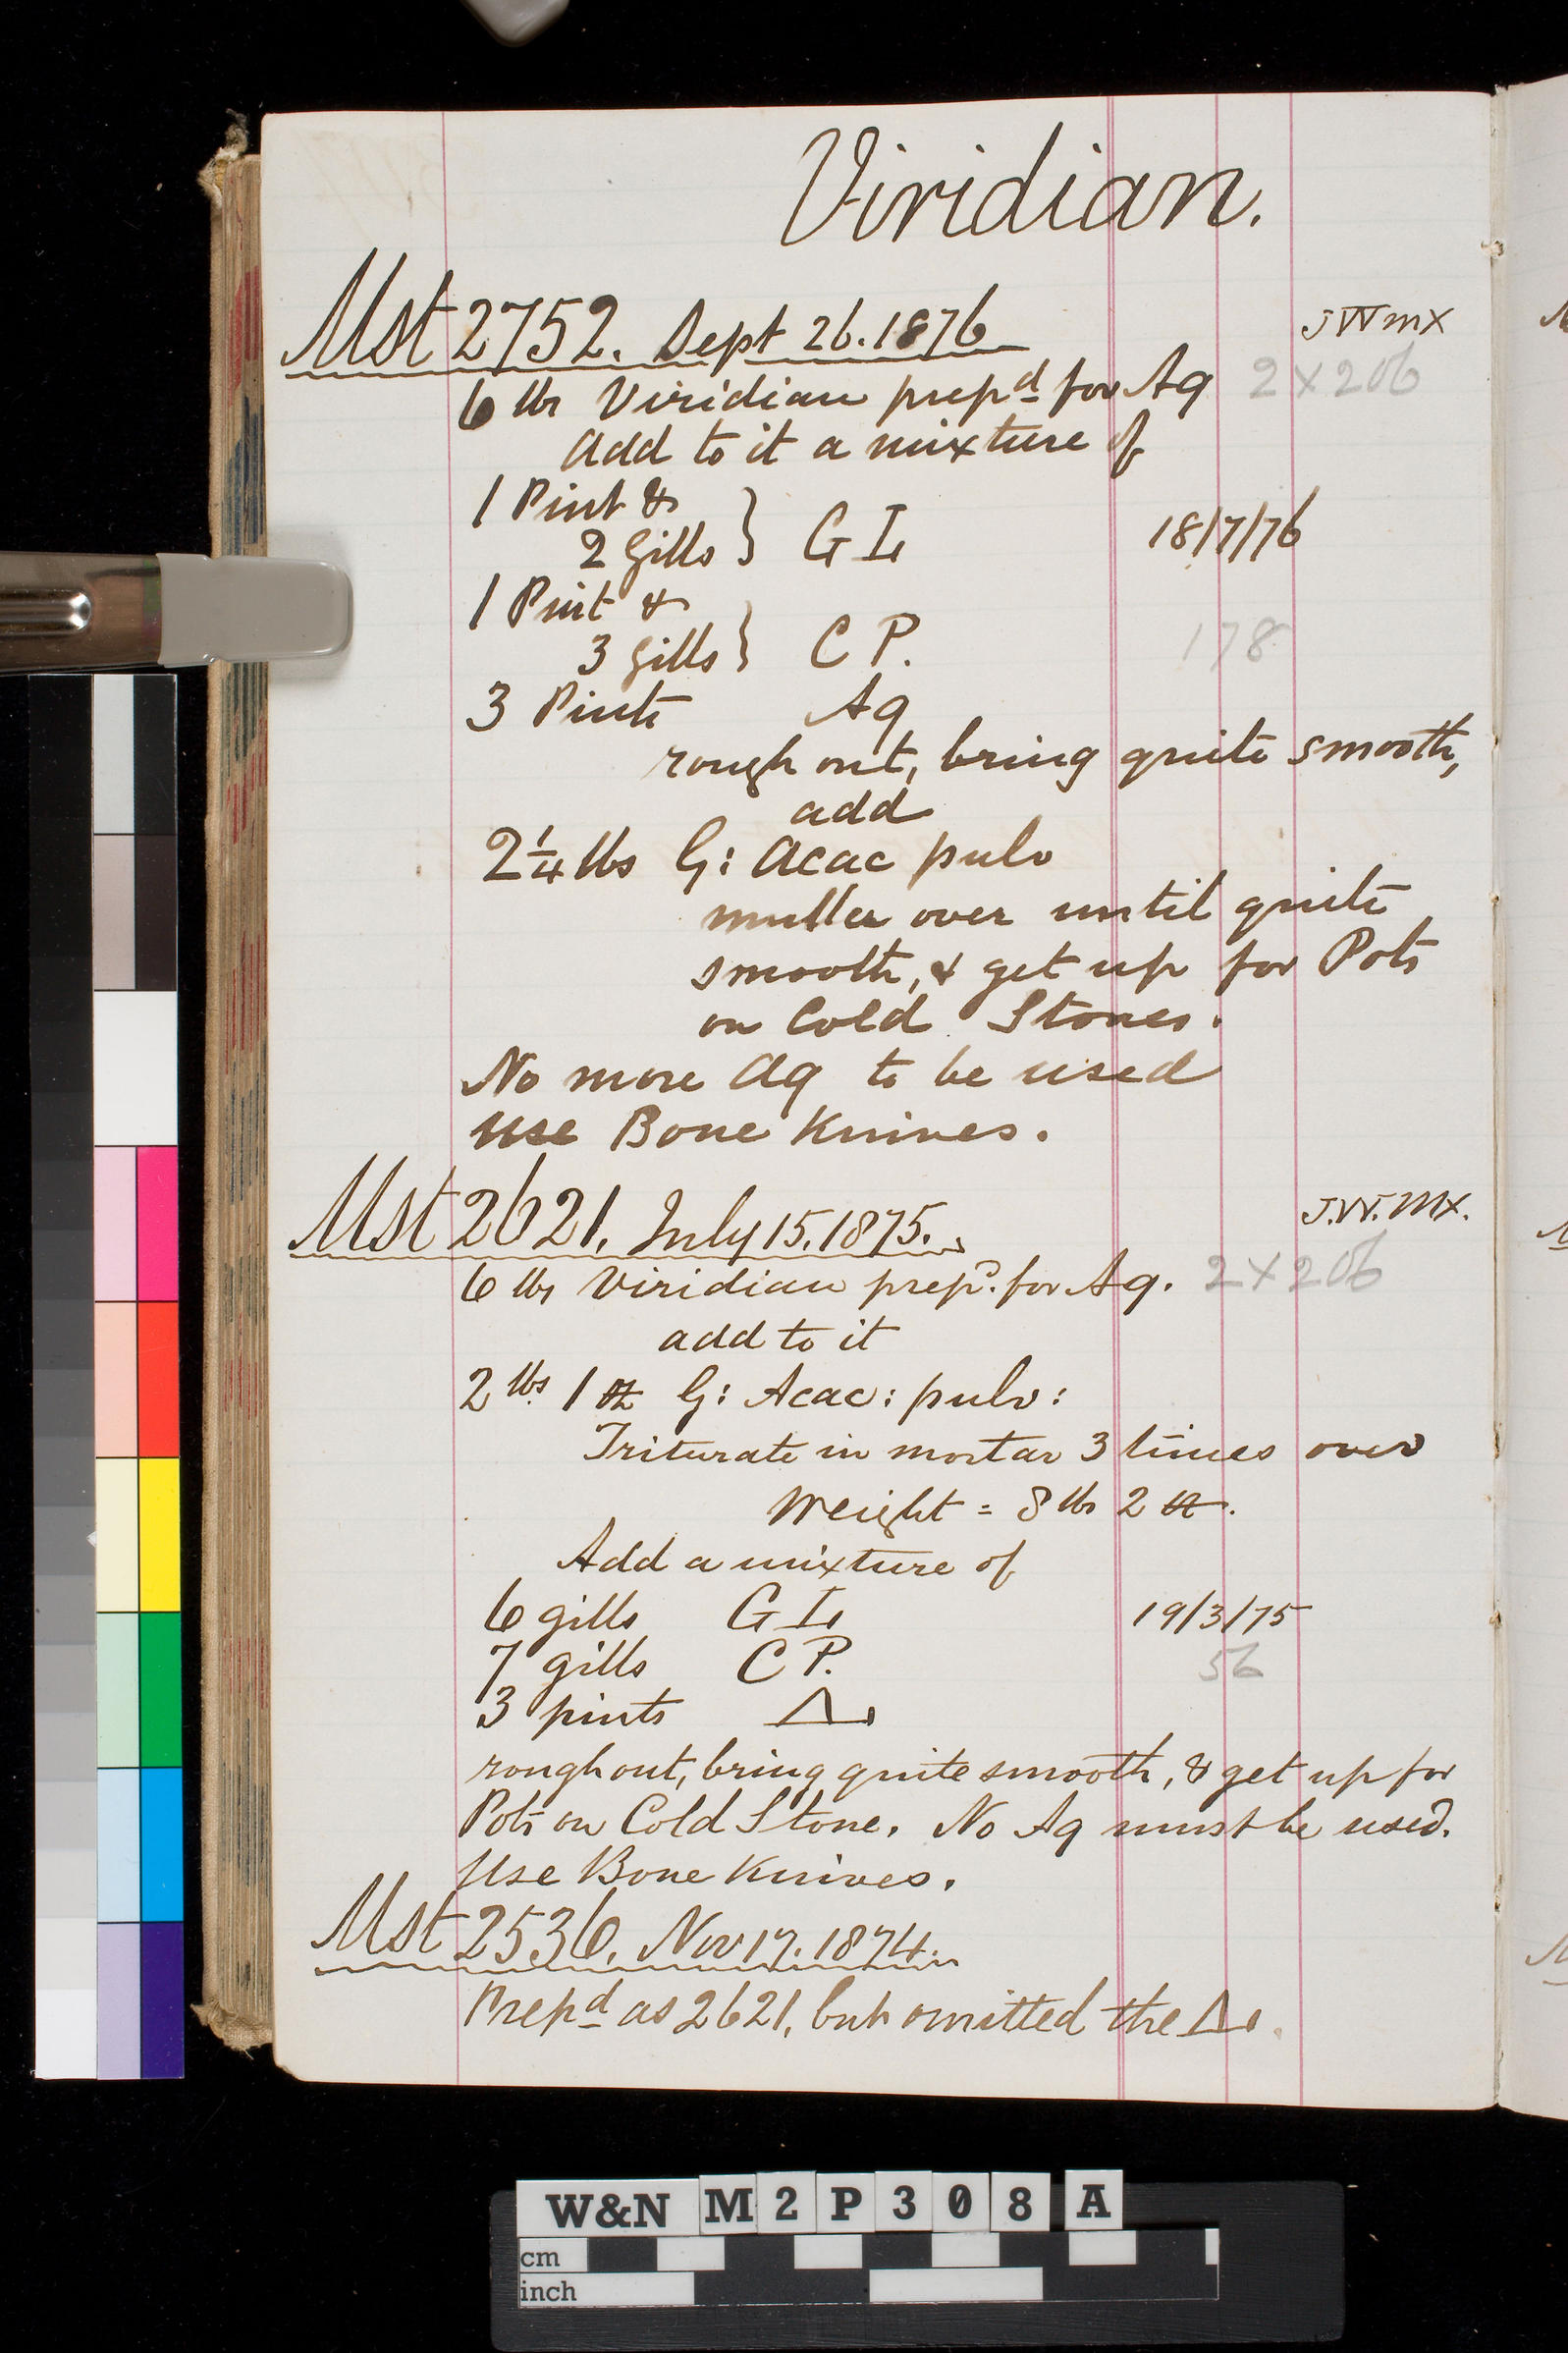 Viridian.
Mst 2752. Sept 26. 1876 JWmx
6 lbs Viridian prepd for Aq 2x206
add to it a mixture of
1 Pint &
2 Gills } G I. 18/7/76
1 Pint &
3 gills } C P. 178
3 Pints Aq
rough out, bring quite smooth,
add
2¼ lbs G: Acac pulv
muller over until quite
smooth, & get up for Pots
on Cold Stones.
No more Aq to be used
Use Bone Knives.
Mst 2621. July 15. 1875. J.W.Mx.
6 lbs Viridian prepd. for Aq. 2x206
add to it
2 lbs. 1 oz G: Acac: pulv:
Triturate in mortar 3 times over
Weight = 8 lbs 2 oz.
Add a mixture of
6 gills G I. 19/3/75
7 gills C P. 56
3 pints Δ.
rough out, bring quite smooth, & get up for
Pots on Cold Stone. No Aq must be used.
Use Bone Knives.
Mst 2536. Nov 17. 1874.
Prepd as 2621, but omitted the Δ.
W&N M2P308A
cm
inch